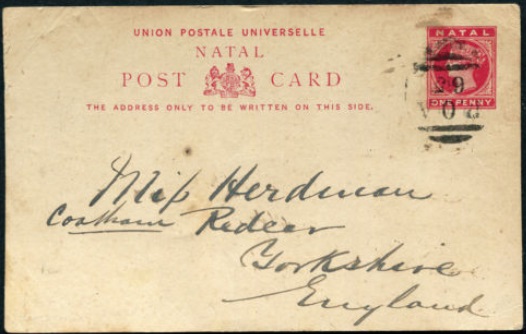 UNION POSTALE UNIVERSELLE
NATAL
POST CARD
THE ADDRESS ONLY TO BE WRITTEN ON THIS SIDE.
NATAL
ONE PENNY
Miſs Herdman
Coatham Redcar
Yorkshire
England